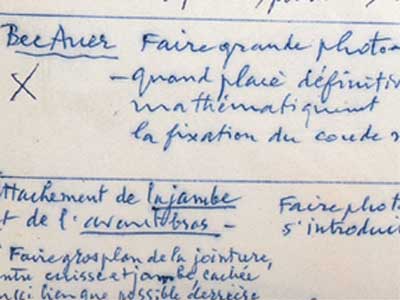 Bec Auer Faire grande photo-
X - quand placé définitiv
mathématiquent
la fixation du coude
ttachement de la jambe
t de l'avant bras -
Faire phot
s'introdui
Faire gros plan de la jointure,
ntre cuisse et jambe, cachée
ussi bien que possible derrière